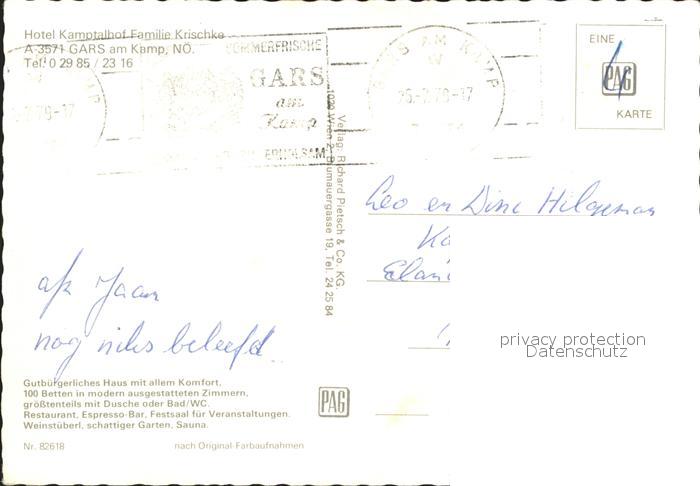 Hotel Kamptalhof Familie Krischke
A-3571 GARS am Kamp, NÖ.
Tel. 0 29 85 / 23 16
SOMMERFRISCHE
GARS
am
Kamp
ERHOLSAM
GARS AM KAMP
-7.79-17
26.-7.79-17
EINE
PAG
KARTE
Verlag: Richard Pietsch & Co. KG.
1020 Wien 2, Blumauergasse 19, Tel. 24 25 84
Leo en Dini Hilgeman
Ka
Elan
Jaar
nog niks beleefd
privacy protection
Datenschutz
Gutbürgerliches Haus mit allem Komfort,
100 Betten in modern ausgestatteten Zimmern,
größtenteils mit Dusche oder Bad/WC.
Restaurant, Espresso-Bar, Festsaal für Veranstaltungen.
Weinstüberl, schattiger Garten, Sauna.
PAG
Nr. 82618 nach Original-Farbaufnahmen